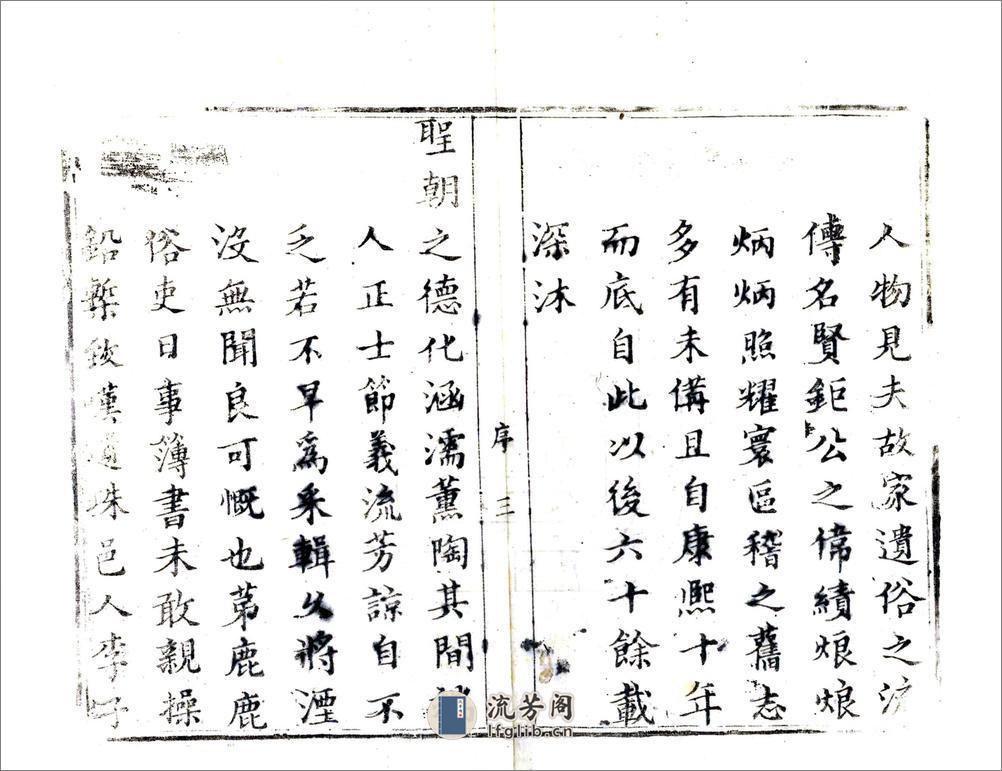 人物見夫故家遺俗之流
傳名賢鉅公之偉績烺烺
炳炳照耀寰區稽之舊志
多有未備且自康熙十年
而底自此以後六十餘載
深沐
序 三
聖朝之德化涵濡薰陶其間
人正士節義流芳諒自不
乏若不早爲采輯久將湮
沒無聞良可慨也苐鹿鹿
俗吏日事簿書未敢親操
鉛槧 珠邑人李子
流芳阁
lfglib.cn